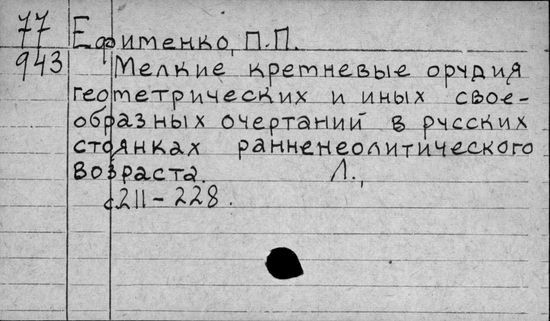 77 Ефименко, П.П.
943 Мелкие кремневые орудия
геометрических и иных свое-
образных очертаний в русских
стоянках ранненеолитического
возраста. Л.,
с.211-228.